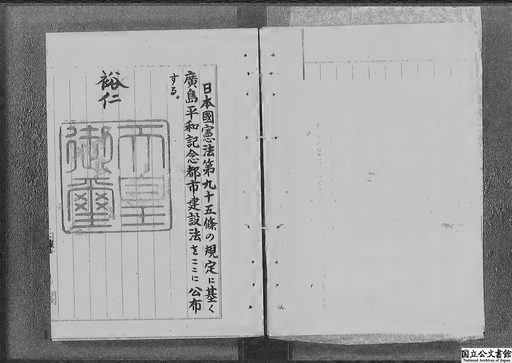 日本國憲法第九十五條の規定に基く
廣島平和記念都市建設法をここに公布
する。
裕仁
天皇
御璽
国立公文書館
National Archives of Japan